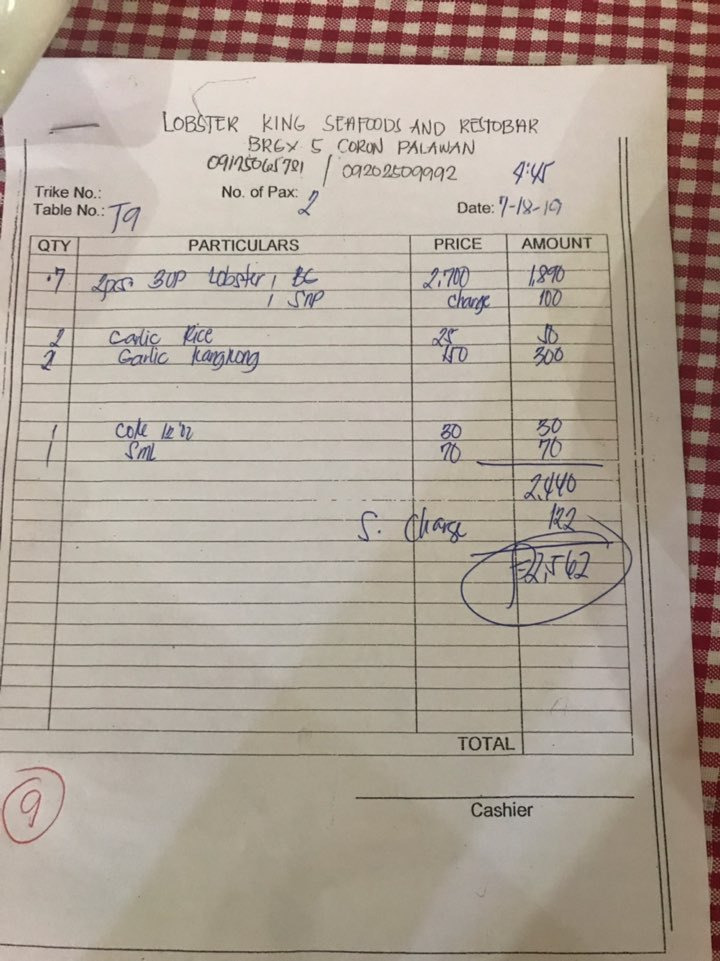 LOBSTER KING SEAFOODS AND RESTOBAR
BRGY 5 CORON PALAWAN
09175065781 / 09202509992 4:45
Trike No.: No. of Pax: 2
Table No.: T9 Date: 7-18-19
QTY PARTICULARS PRICE AMOUNT
.7 2pcs. 3UP Lobster 1 BC 2,700 1,890
1 SNP change 100
2 Garlic Rice 25 50
2 Garlic Kangkong 150 300
1 Coke 12oz 30 30
1 SML 70 70
2,440
S. Charge 122
=2,562
TOTAL
9
Cashier